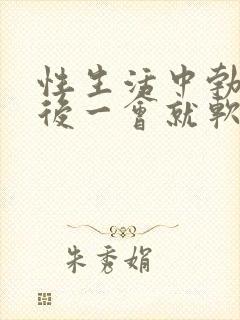 性生活中勃
後一會就軟
朱秀娟